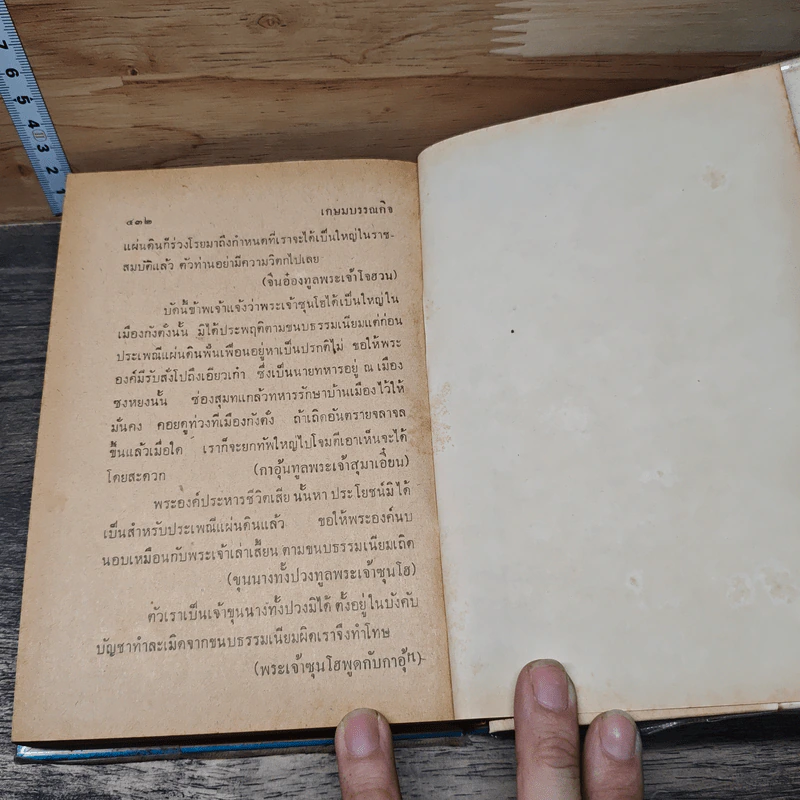 7
6
5
4
3
2
1
๔๓๒ เกษมบรรณกิจ
แผ่นดินก็ร่วงโรยมาถึงกำหนดที่เราจะได้เป็นใหญ่ในราช-
สมบัติแล้ว ตัวท่านอย่ามีความวิตกไปเลย
(จินอ๋องทูลพระเจ้าโจฮวน)
บัดนี้ข้าพเจ้าแจ้งว่าพระเจ้าซุนโฮได้เป็นใหญ่ใน
เมืองกังตั๋งนั้น มิได้ประพฤติตามขนบธรรมเนียมแต่ก่อน
ประเพณีแผ่นดินฟั่นเฟือนอยู่หาเป็นปรกติไม่ ขอให้พระ
องค์มีรับสั่งไปถึงเอียวเก๋า ซึ่งเป็นนายทหารอยู่ ณ เมือง
ซงหยงนั้น ซ่องสุมทแกล้วทหารรักษาบ้านเมืองไว้ให้
มั่นคง คอยดูท่วงทีเมืองกังตั๋ง ถ้าเกิดอันตรายจลาจล
ขึ้นแล้วเมื่อใด เราก็จะยกทัพใหญ่ไปโจมตีเอาเห็นจะได้
โดยสะดวก (กาอุ้นทูลพระเจ้าสุมาเอี๋ยน)
พระองค์ประหารชีวิตเสีย นั้นหา ประโยชน์มิได้
เป็นสำหรับประเพณีแผ่นดินแล้ว ขอให้พระองค์นบ
นอบเหมือนกับพระเจ้าเล่าเสี้ยน ตามขนบธรรมเนียมเถิด
(ขุนนางทั้งปวงทูลพระเจ้าซุนโฮ)
ตัวเราเป็นเจ้าขุนนางทั้งปวงมิได้ ตั้งอยู่ในบังคับ
บัญชาทำละเมิดจากขนบธรรมเนียมผิดเราจึงทำโทษ
(พระเจ้าซุนโฮพูดกับกาอุ้น)